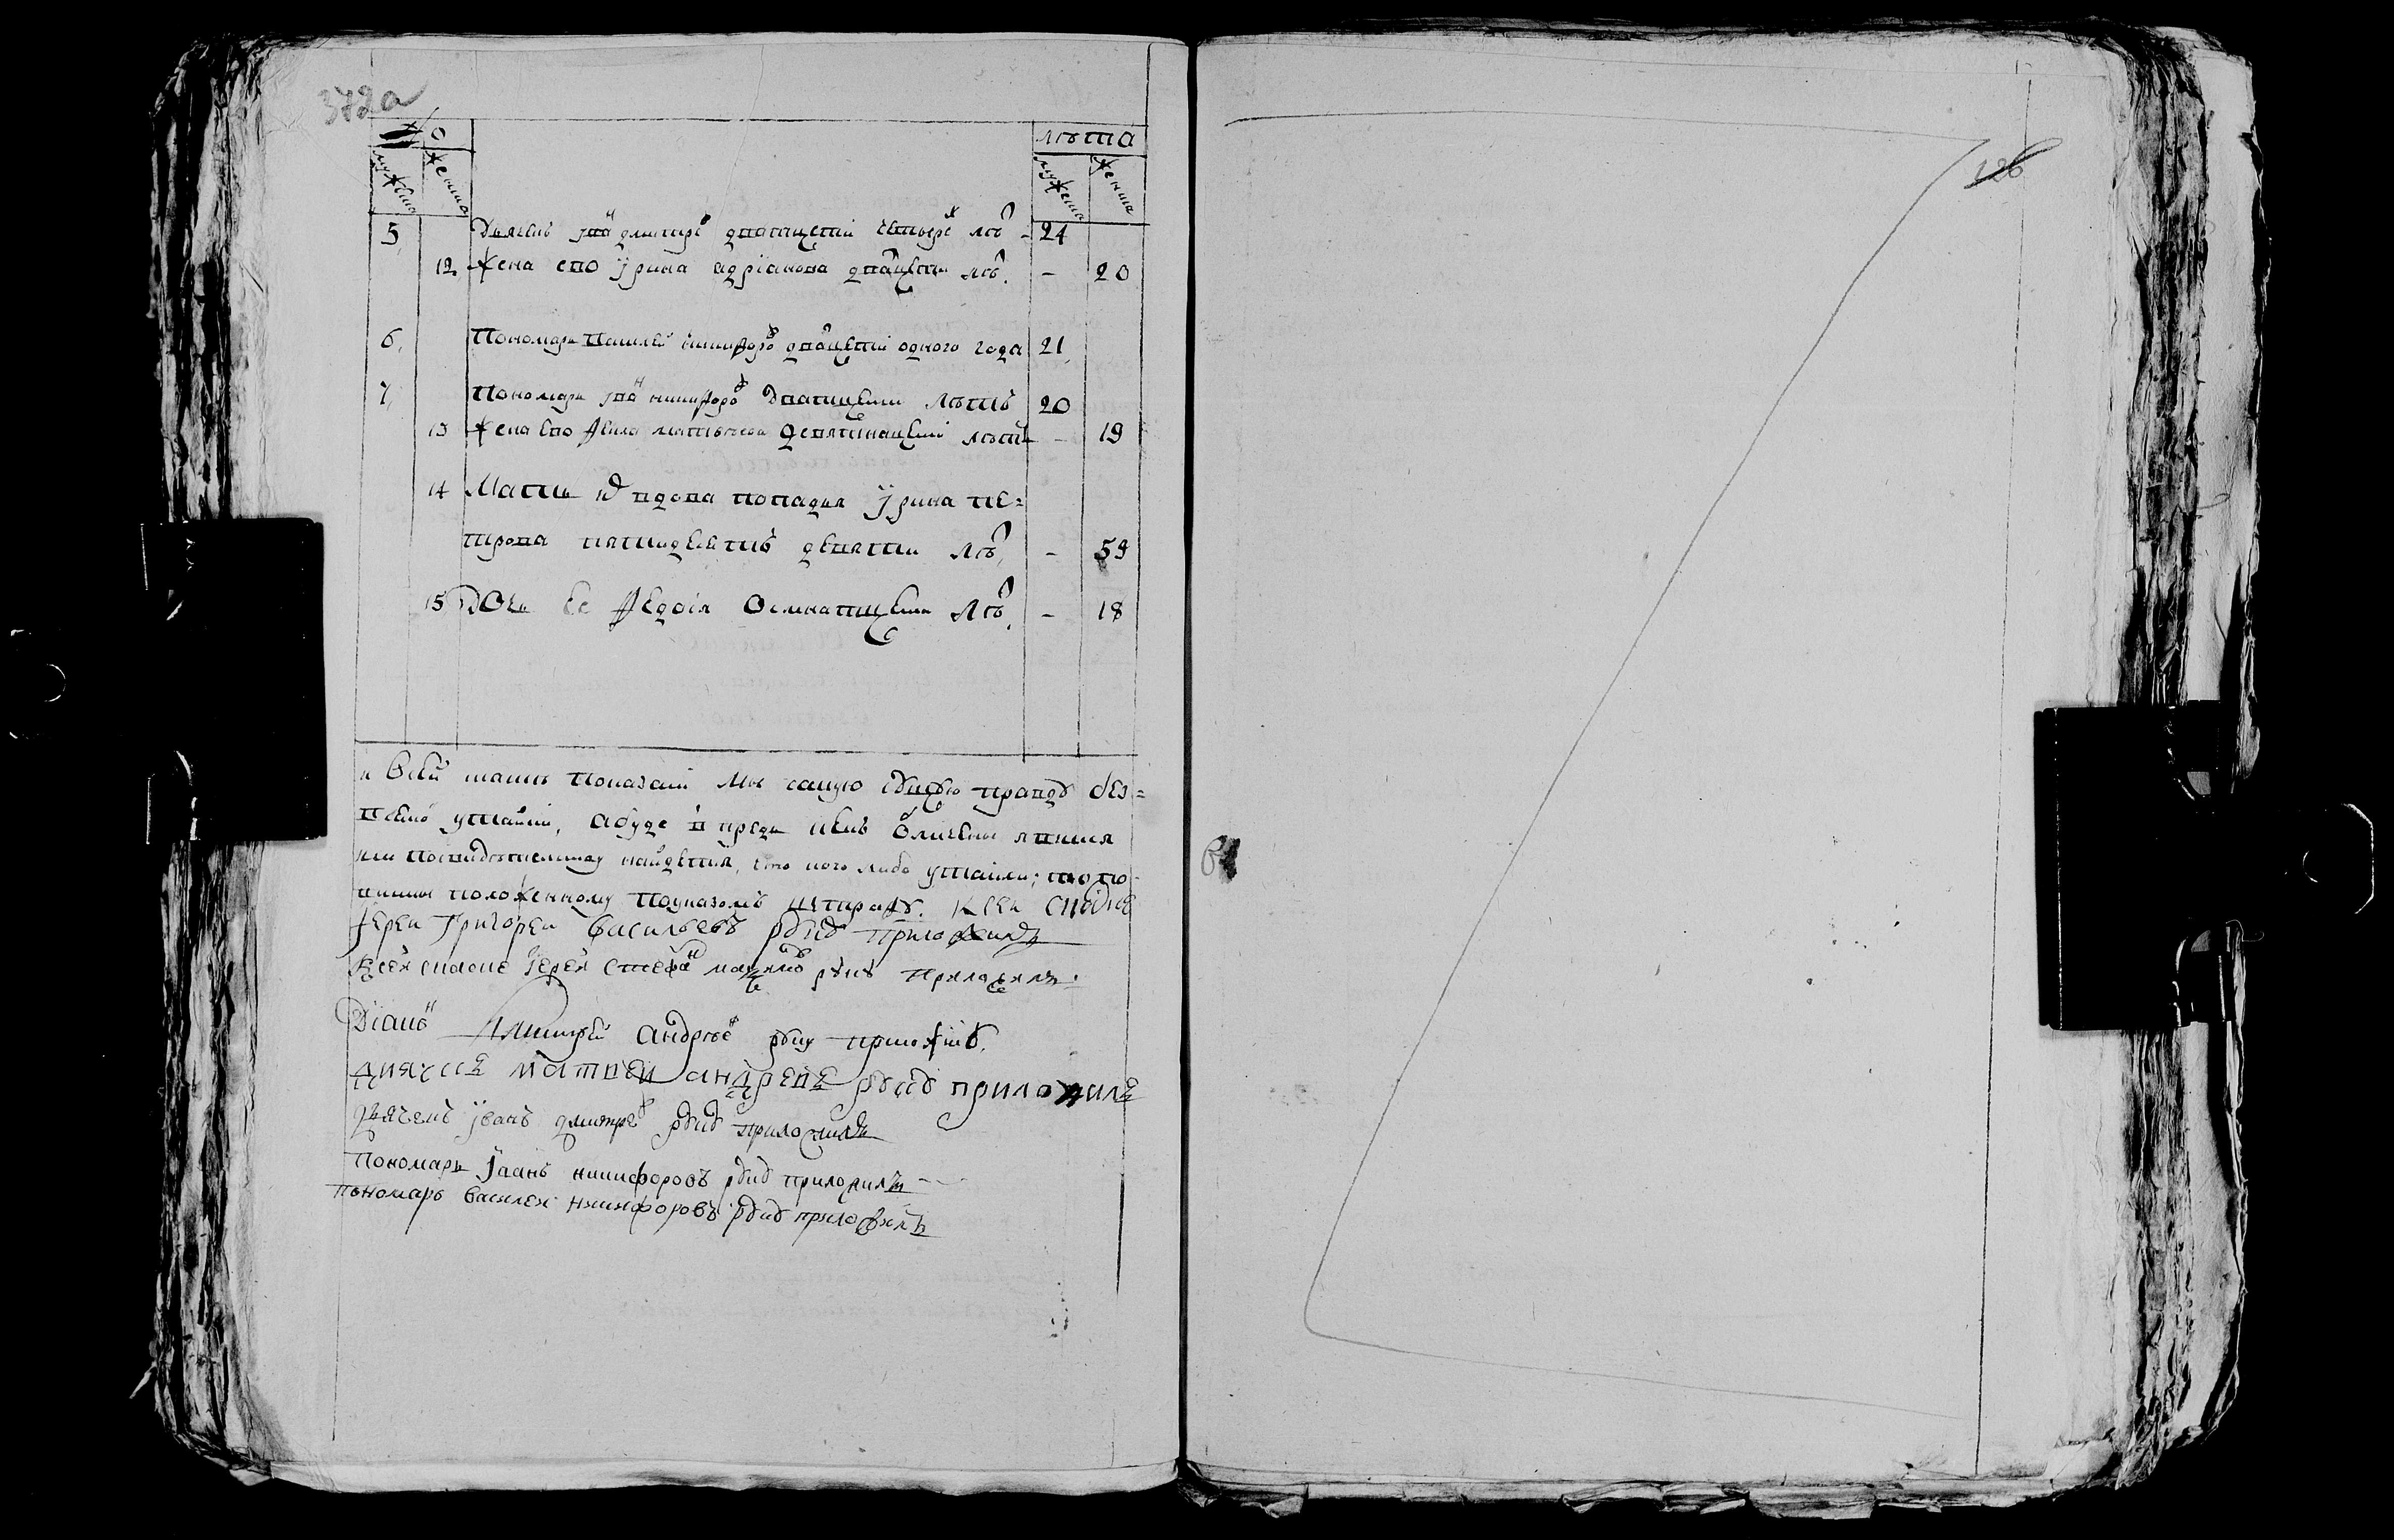 372а
лѣта
мужеска женска мужеска женска
5 Дьячекъ Іван Дмитрев дватцети четырех лѣт - 24
12 жена ево Ірина Адріанова дватцети лѣт. - 20
6. Пономарь Василей Никифоров дватцети одного года 21
7. Пономарь Іван Никифоров дватцети лѣтъ 20
13 жена ево Матвѣева девятнатцети лѣтъ - 19
14 Мать их вдова попадья Ірина Пе=
трова пятидесятъ девяти лѣт, - 59
15 Дочь ее Федосія осмнатцети лѣт. - 18
и в сей таковъ показали мы самую сущую правду без=
всякой утайки, а буде впредь кемъ обличены явимся
или по свидѣтелству найдется, что кого либо утаили; то по=
винны положенному по указомъ штрафу. К сей скаске
Іерей Григорей Васильевъ руку приложилъ
К сей скаске іерей Стефан руку приложилъ.
Діакон Дмитрей Андрѣев руку приложил.
Диячекъ Матвей Андреев руку приложилъ
Дьячекъ Іванъ Дмитрев руку приложилъ
Пономарь Іванъ Никифоровъ руку приложилъ
пономарь Василей Никифоровъ руку приложилъ
126